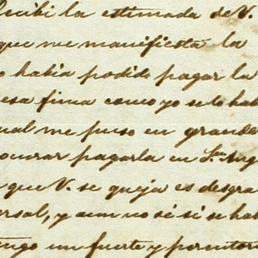 Recibi la estimada de V.
que me manifiesta la
o habia podido pagar la
esa firma como yo se lo hab
ual me puso en grande
ocurar pagarla en Sn. Aug
que V. se queja es desgra
ersal, y aun no sé si se hab
engo un fuerte y perentori